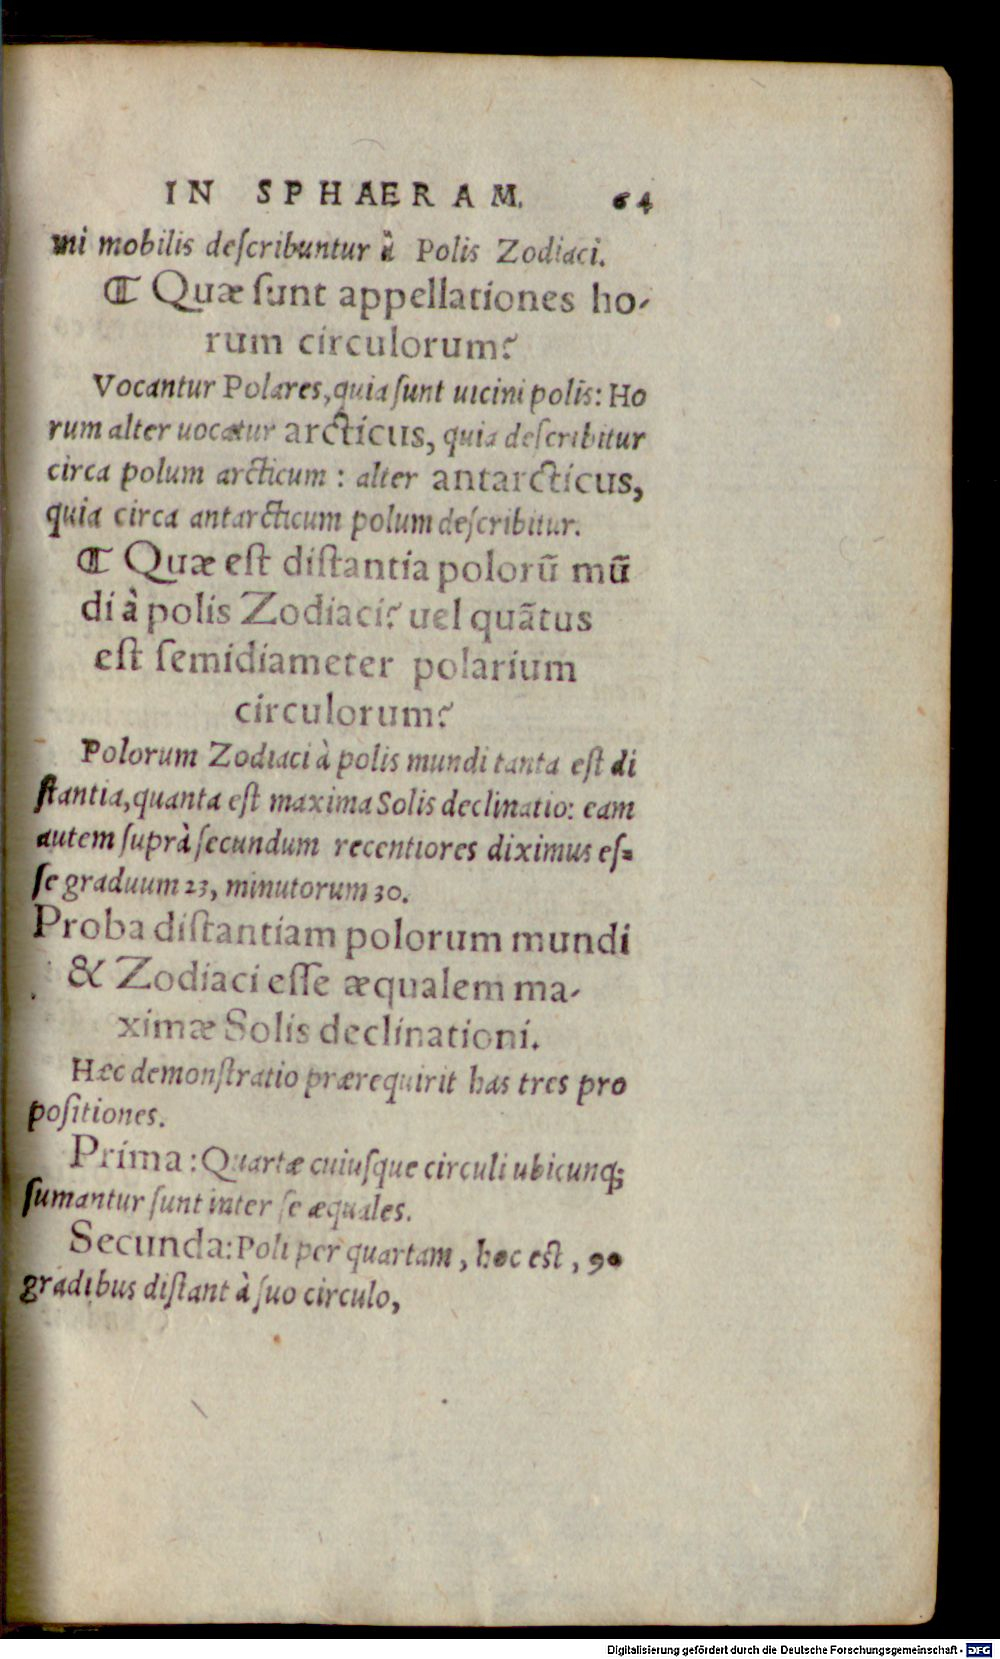 IN SPHAERAM. 64
mi mobilis deſcribuntur à Polis Zodiaci.
⁋ Quæ ſunt appellationes ho-
rum circulorum?
Vocantur Polares, quia ſunt uicini polis: Ho
rum alter uocatur arcticus, quia deſcribitur
circa polum arcticum : alter antarcticus,
quia circa antarcticum polum deſcribitur.
⁋ Quæ eſt diſtantia polorū mū
di à polis Zodiaci? uel quātus
eſt ſemidiameter polarium
circulorum?
Polorum Zodiaci à polis mundi tanta eſt di
ſtantia, quanta eſt maxima Solis declinatio: eam
autem ſuprà ſecundum recentiores diximus eſ=
ſe graduum 23, minutorum 30.
Proba diſtantiam polorum mundi
& Zodiaci eſſe æqualem ma-
ximæ Solis declinationi.
Hæc demonſtratio prærequirit has tres pro
poſitiones.
Prima: Quartæ cuiuſque circuli ubicunq;
ſumantur ſunt inter ſe æquales.
Secunda: Poli per quartam, hoc eſt, 90
gradibus diſtant à ſuo circulo,
Digitalisierung gefördert durch die Deutsche Forschungsgemeinschaft - DFG